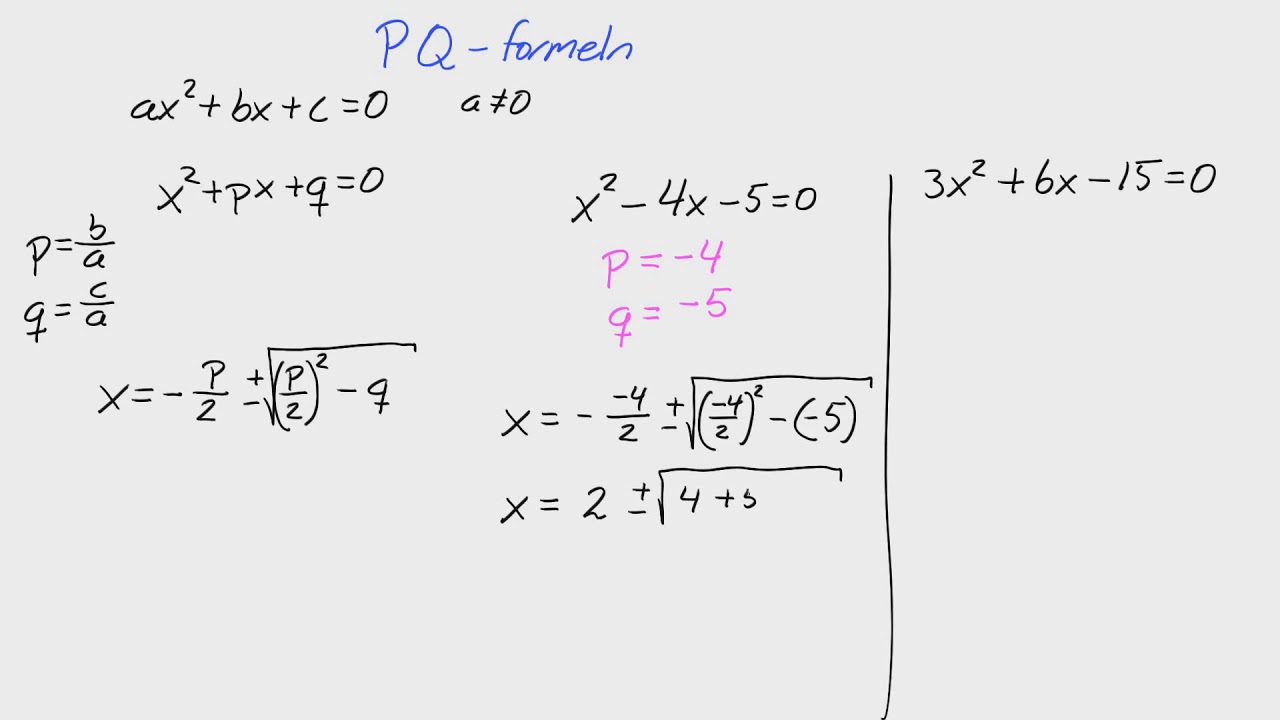 PQ-formeln
ax²+bx+c=0 a≠0
x²+px+q=0
p=b/a
q=c/a
x=-p/2±√((p/2)²-q)
x²-4x-5=0
p=-4
q=-5
x=--4/2±√((-4/2)²-(-5))
x=2±√(4+5
3x²+6x-15=0